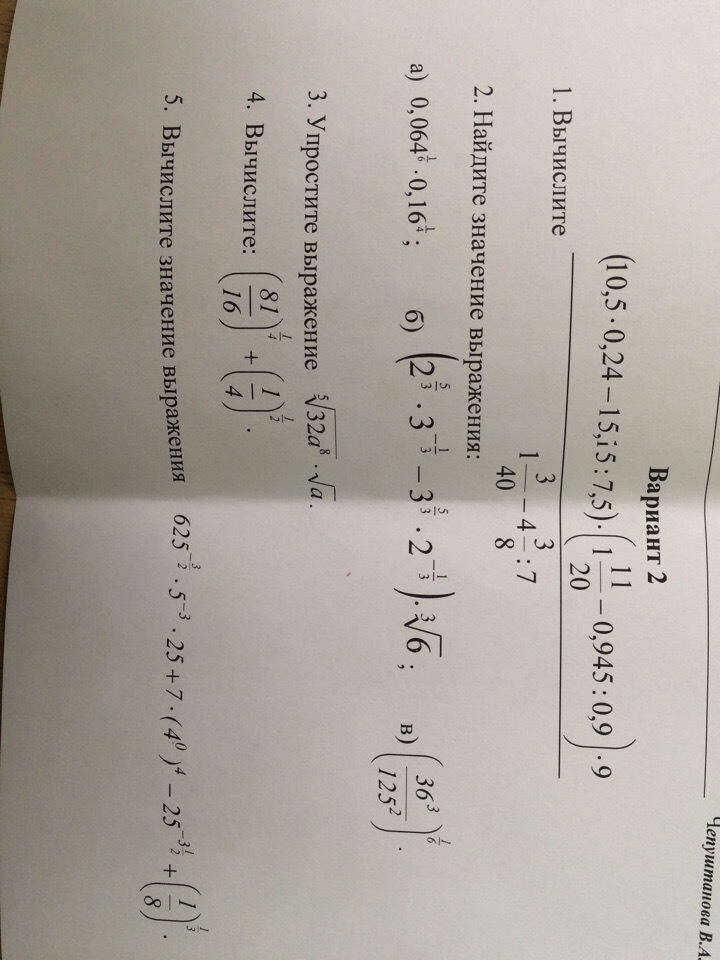 Чепуштанова В.А.
Вариант 2
1. Вычислите ((10,5 · 0,24 − 15,15 : 7,5) · (1 11/20 − 0,945 : 0,9) · 9) / (1 3/40 − 4 3/8 : 7)
2. Найдите значение выражения:
а) 0,064^(1/6) · 0,16^(1/4); б) (2^(5/3) · 3^(−1/3) − 3^(5/3) · 2^(−1/3)) · ∛6; в) (36³/125²)^(1/6).
3. Упростите выражение ⁵√(32a⁸) · √a.
4. Вычислите: (81/16)^(1/4) + (1/4)^(1/2).
5. Вычислите значение выражения 625^(−3/2) · 5⁻³ · 25 + 7 · (4⁰)⁴ − 25^(−3 1/2) + (1/8)^(1/3).